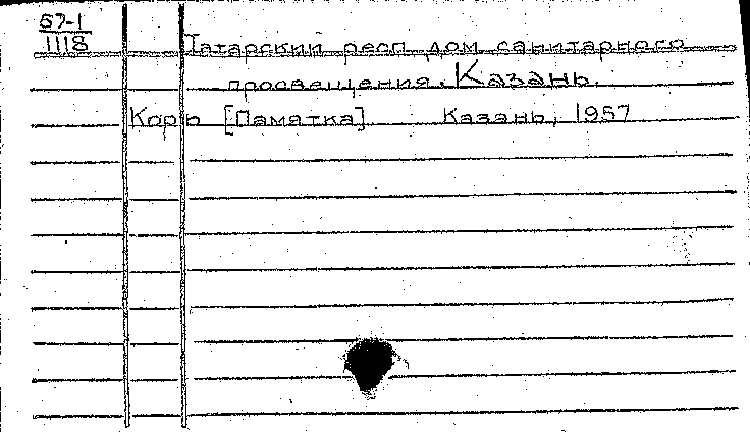 57-1
1118
Татарский респ. дом санитарного
просвещения. Казань.
Корь [Памятка] Казань, 1957